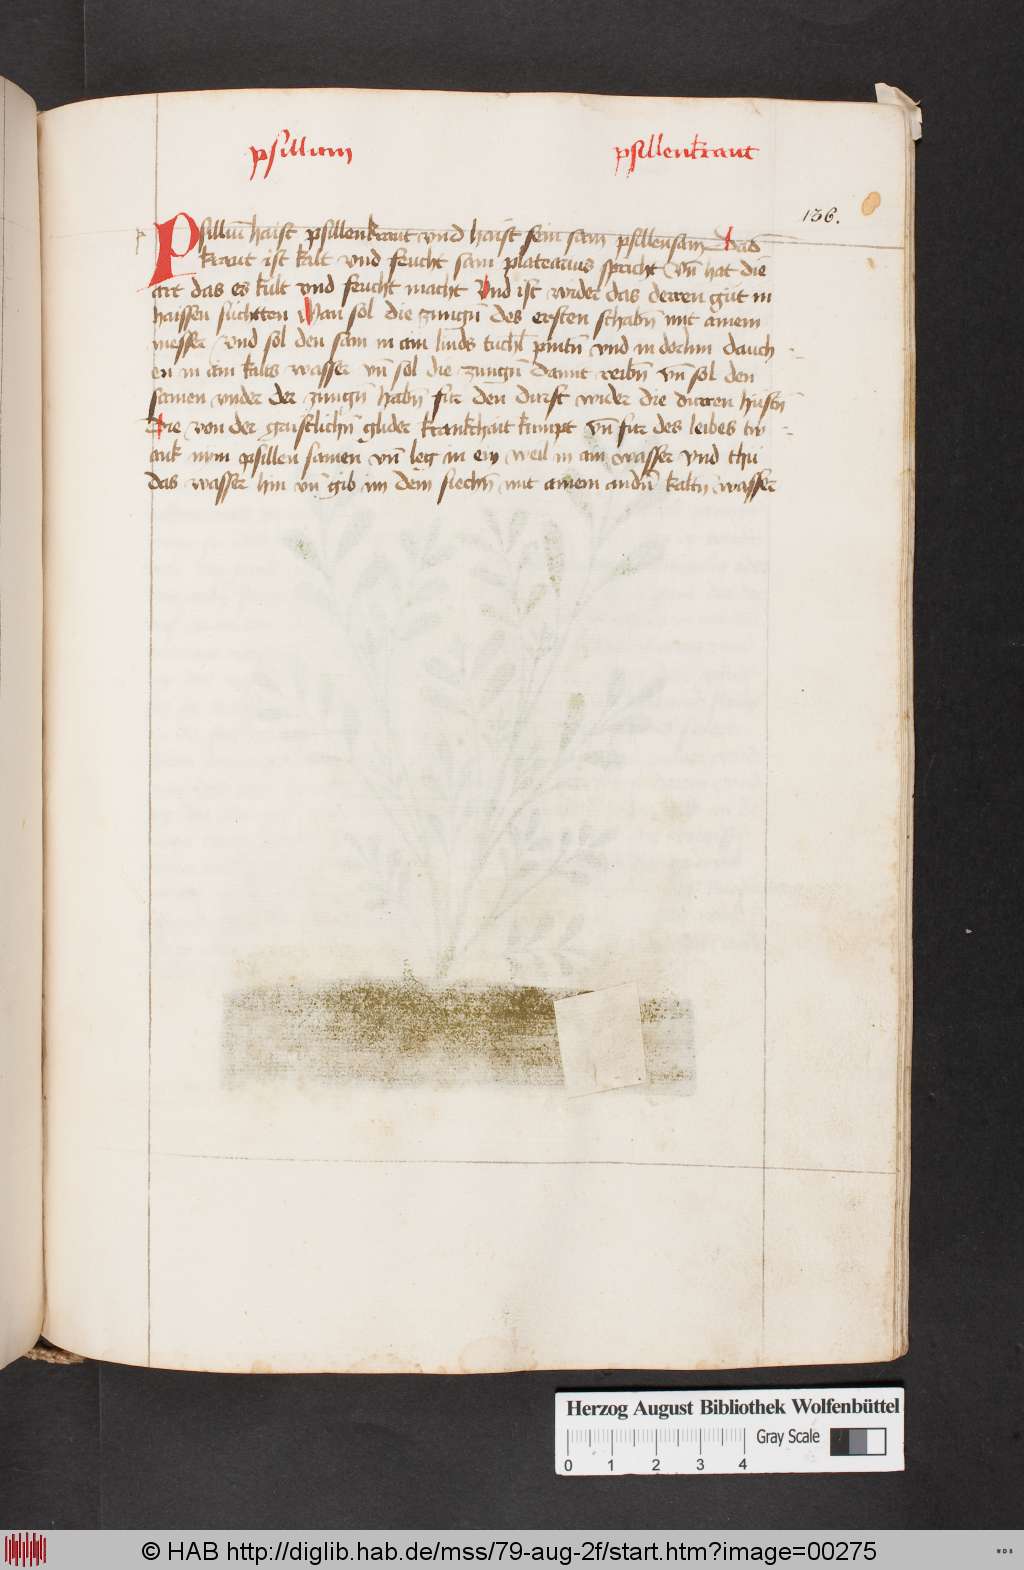 psillium psillenkraut
136.
p
Psilliu̅ haist psillenkraut vnd haist sein sam psillensam Das
kraut ist kalt vnd feucht sam platearius spricht vn̅ hat die
art das es kult vnd feucht macht Vnd ist wider das derren gut in
haissen suchtten Man sol die zungn̅ des ersten schabn̅ mit ainem
messer vnd sol den sam in ain linds tuchl pintn̅ vnd in dorhin dauch
en in ain kalts wasser vn̅ sol die zungn̅ damit reibn̅ vn̅ sol den
samen vnder der zungn̅ habn̅ fur den durst wider die durren husten
Die von der geistlichn̅ glider krankhait kumpt vn̅ fur des leibes tw
ank nym psillen samen vn̅ leg in ein weil in ain wasser vnd thu
das wasser hin vn̅ gib im dem siechn̅ mit ainem andn̅ kaltn̅ wasser
Herzog August Bibliothek Wolfenbüttel
Gray Scale
0 1 2 3 4
© HAB http://diglib.hab.de/mss/79-aug-2f/start.htm?image=00275